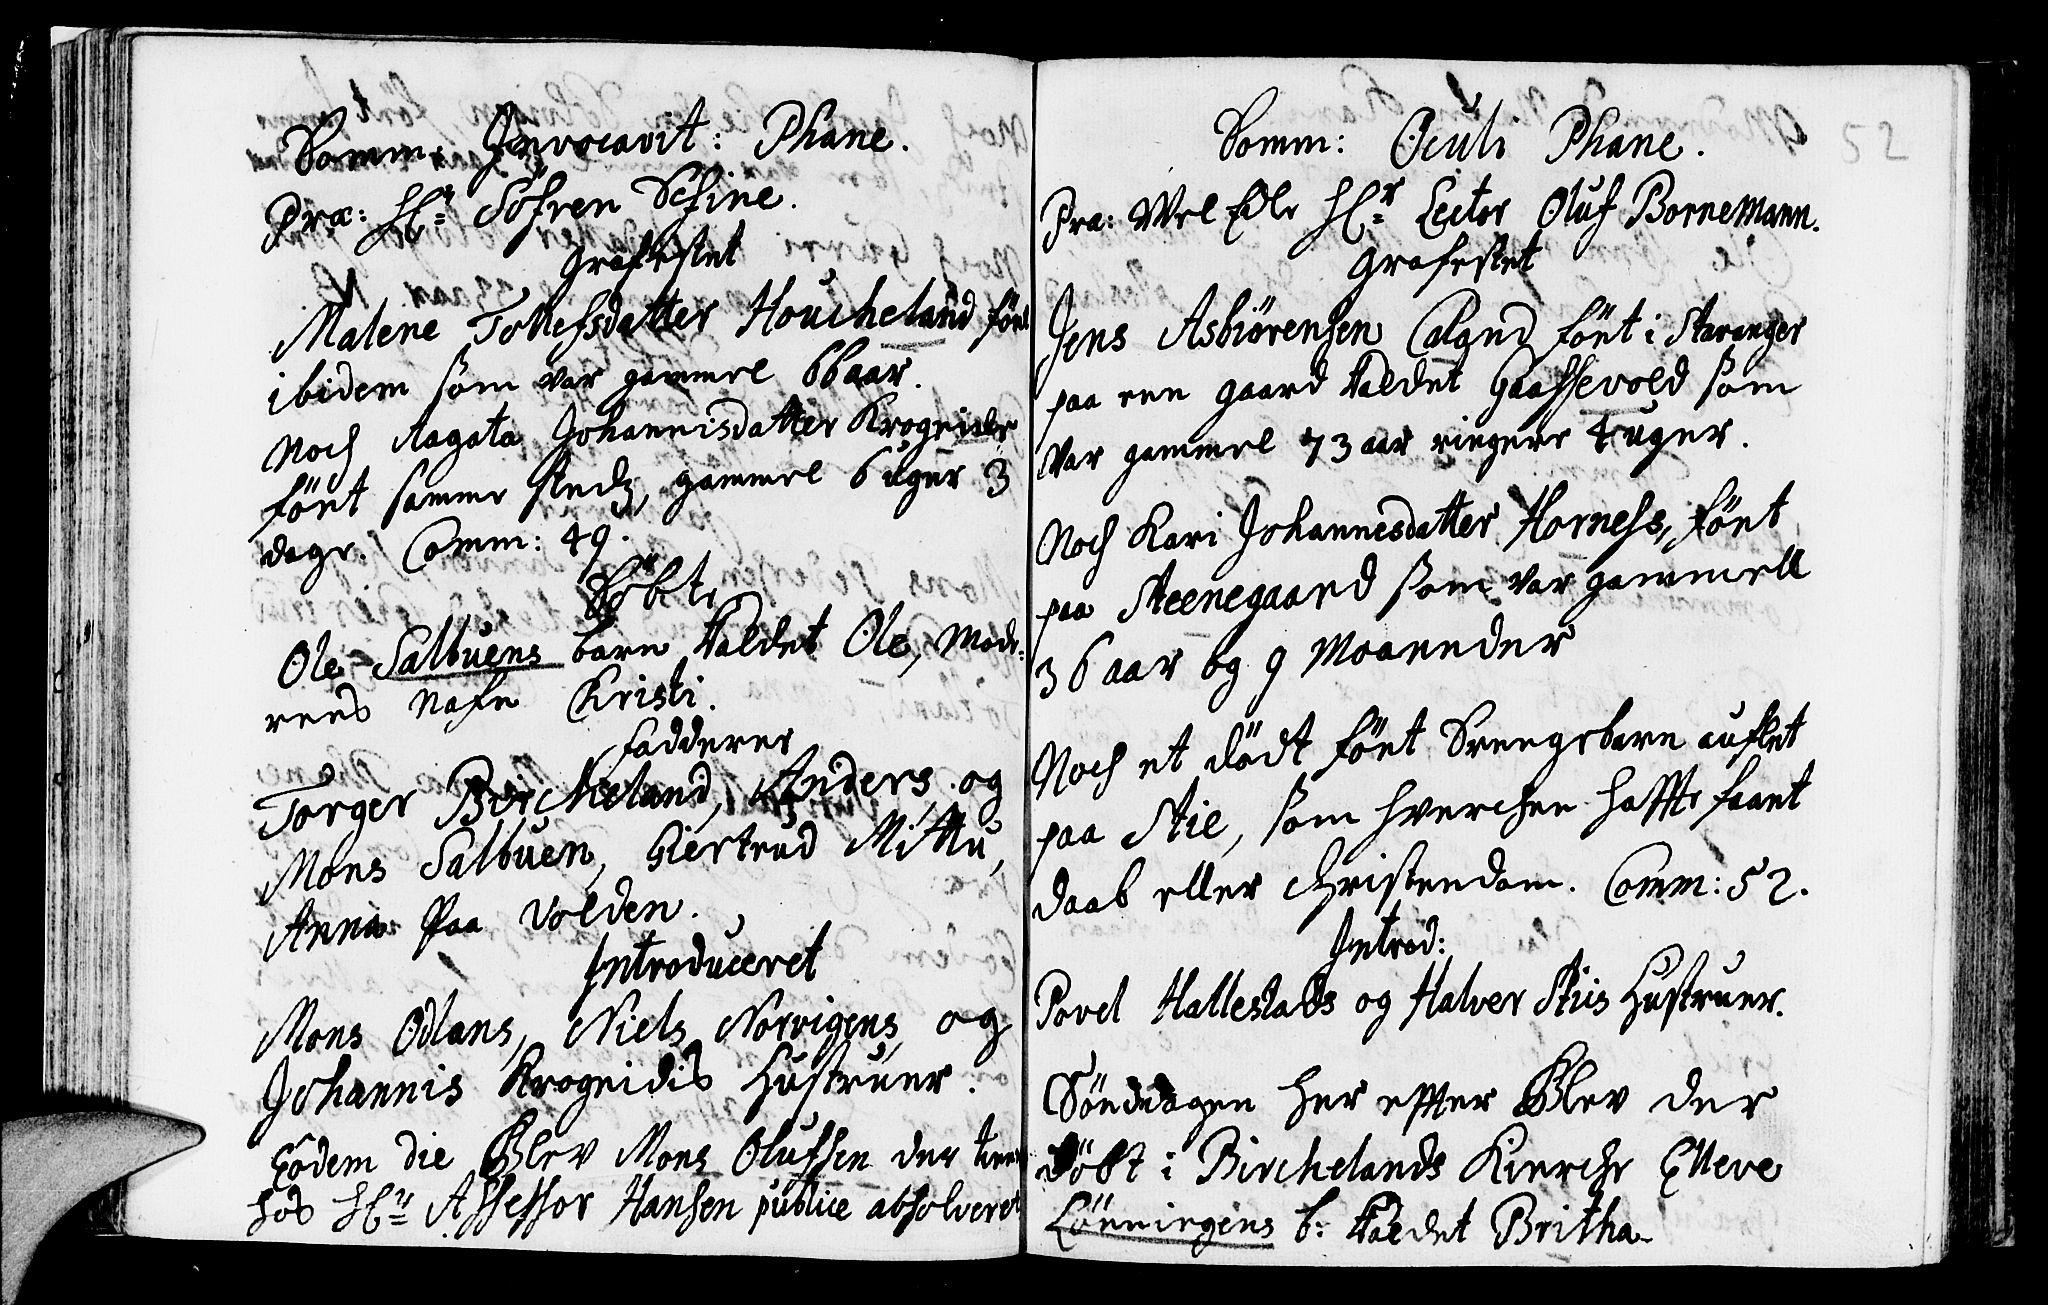 Domm: Invocavit: Phane.
Præ: Hr Söfren Schine.
Grafestet
Malene Tollefsdatter Houcheland född
ibidem som var gammel 66 aar.
Noch Aagata Johannisdatter Krogeide
född samme stedz, gammel 6 uger 3
dage. Comm: 49.
Döbte
Ole Salbuens barn kaldet Ole, Mode:
rens Nafn Kristi.
Fadderer
Torger Bircheland, Anders og
Mons Salbuen, Giertrud Mittu,
Anna Paa Volden.
Introduceret
Mons Odlans, Niels Norvigens og
Johannis Krogeidis Hustruer.
Eodem die Blev Mons Olufsen der tien
hos Hr Assessor Hansen publice absolveret
52
Domm: Oculi Phane.
Præ: Vel Edle Hr Lector Oluf Bornemann.
Grafestet
Jens Asbiörensen Caland födt i Stavanger
paa een gaard kaldet Gaassevold som
var gammel 73 aar ringere 4 uger.
Noch Kari Johannesdatter Horness, födt
paa Steenegaard som var gammell
36 aar og 9 Maaneder
Noch et dödt födt Drengebarn auflet
paa Stie, som hverchen haffte faaet
daab eller Christendom. Comm: 52.
Introd:
Povel Hallestads og Halver Stiis Hustruer.
Sönddagen her effter Blev der
döbt i Birchelands Kierche Elleve
Lönningens b: kaldet Britha